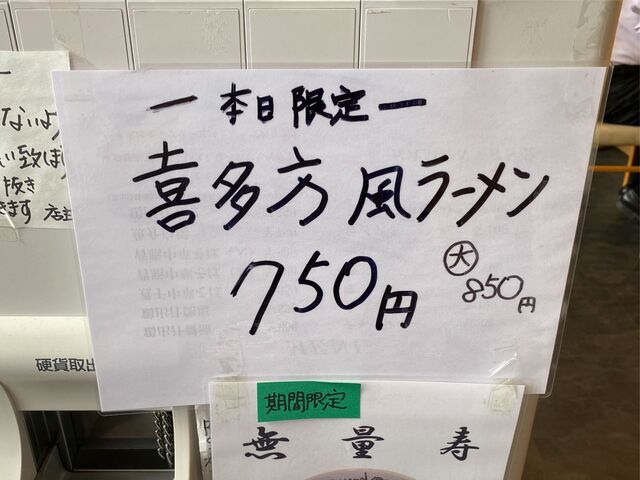 ー本日限定ー
喜多方風ラーメン
750円
大 850円
ないよ
い致しま
抜き
きます 店主
硬貨取出
期間限定
無量寿